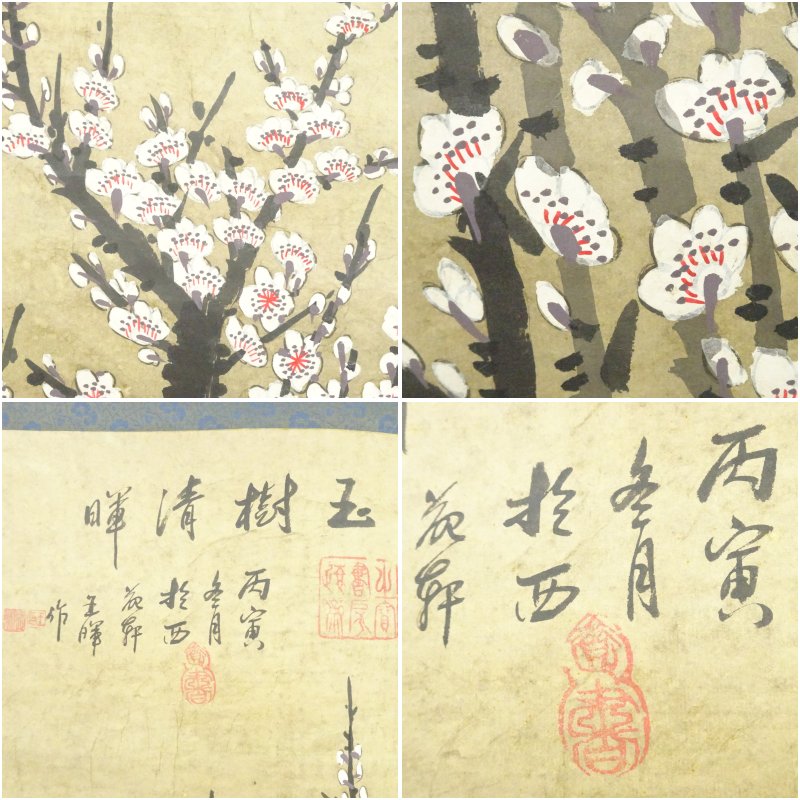 玉樹清暉
丙寅
冬月
於西
苑軒
王暉
作
丙寅
冬月
於西
苑軒